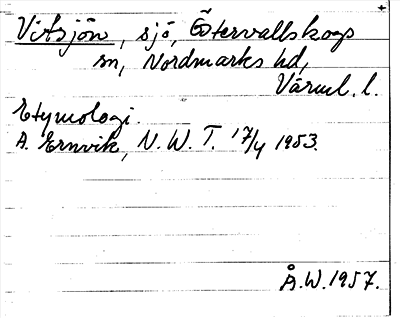 Vitsjön, sjö, Östervallskogs
sn, Nordmarks hd,
Värml. l.
Etymologi.
A. Ernvik, N.W.T. 17/4 1953.
Å.W. 1957.